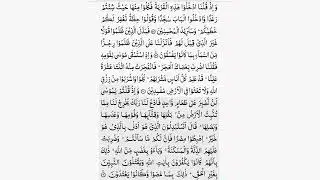 وَإِذْ قُلْنَا ادْخُلُوا هَٰذِهِ الْقَرْيَةَ فَكُلُوا مِنْهَا حَيْثُ شِئْتُمْ
رَغَدًا وَادْخُلُوا الْبَابَ سُجَّدًا وَقُولُوا حِطَّةٌ نَّغْفِرْ لَكُمْ
خَطَايَاكُمْ ۚ وَسَنَزِيدُ الْمُحْسِنِينَ فَبَدَّلَ الَّذِينَ ظَلَمُوا قَوْلًا
غَيْرَ الَّذِي قِيلَ لَهُمْ فَأَنزَلْنَا عَلَى الَّذِينَ ظَلَمُوا رِجْزًا
مِّنَ السَّمَاءِ بِمَا كَانُوا يَفْسُقُونَ وَإِذِ اسْتَسْقَىٰ مُوسَىٰ لِقَوْمِهِ
فَقُلْنَا اضْرِب بِّعَصَاكَ الْحَجَرَ ۖ فَانفَجَرَتْ مِنْهُ اثْنَتَا عَشْرَةَ
عَيْنًا ۖ قَدْ عَلِمَ كُلُّ أُنَاسٍ مَّشْرَبَهُمْ ۖ كُلُوا وَاشْرَبُوا مِن رِّزْقِ
اللَّهِ وَلَا تَعْثَوْا فِي الْأَرْضِ مُفْسِدِينَ وَإِذْ قُلْتُمْ يَا مُوسَىٰ
لَن نَّصْبِرَ عَلَىٰ طَعَامٍ وَاحِدٍ فَادْعُ لَنَا رَبَّكَ يُخْرِجْ لَنَا مِمَّا
تُنبِتُ الْأَرْضُ مِن بَقْلِهَا وَقِثَّائِهَا وَفُومِهَا وَعَدَسِهَا
وَبَصَلِهَا ۖ قَالَ أَتَسْتَبْدِلُونَ الَّذِي هُوَ أَدْنَىٰ بِالَّذِي هُوَ
خَيْرٌ ۚ اهْبِطُوا مِصْرًا فَإِنَّ لَكُم مَّا سَأَلْتُمْ ۗ وَضُرِبَتْ
عَلَيْهِمُ الذِّلَّةُ وَالْمَسْكَنَةُ وَبَاءُوا بِغَضَبٍ مِّنَ اللَّهِ ۗ ذَٰلِكَ
بِأَنَّهُمْ كَانُوا يَكْفُرُونَ بِآيَاتِ اللَّهِ وَيَقْتُلُونَ النَّبِيِّينَ
بِغَيْرِ الْحَقِّ ۗ ذَٰلِكَ بِمَا عَصَوا وَّكَانُوا يَعْتَدُونَ